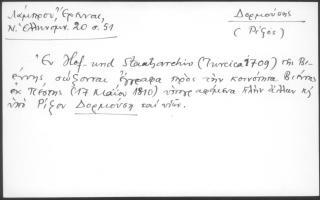 Λάμπρου, Ἔρευναι,
Ν. Ἑλληνομν. 20 σ. 51
Δορμούσης
(Ρίζος)
Ἐν Hof- und Staatsarchiv (Turcica 1709) τῆς Βι-
έννης, σώζονται ἔγγραφα πρὸς τὴν κοινότητα Βιέννης
ἐκ Πέστης (17 Μαΐου 1810) ὑπογεγραμμένα πλὴν ἄλλων κ
ὑπὸ Ρίζου Δορμούση καὶ υἱῶν.